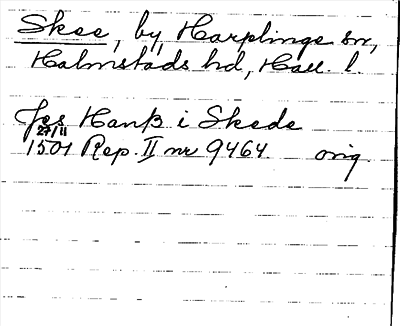 Skee, by, Harplinge sn,
Halmstads hd, Hall. l.
Jes Hanß i Skede
27/11
1501 Rep. II nr 9464 orig.